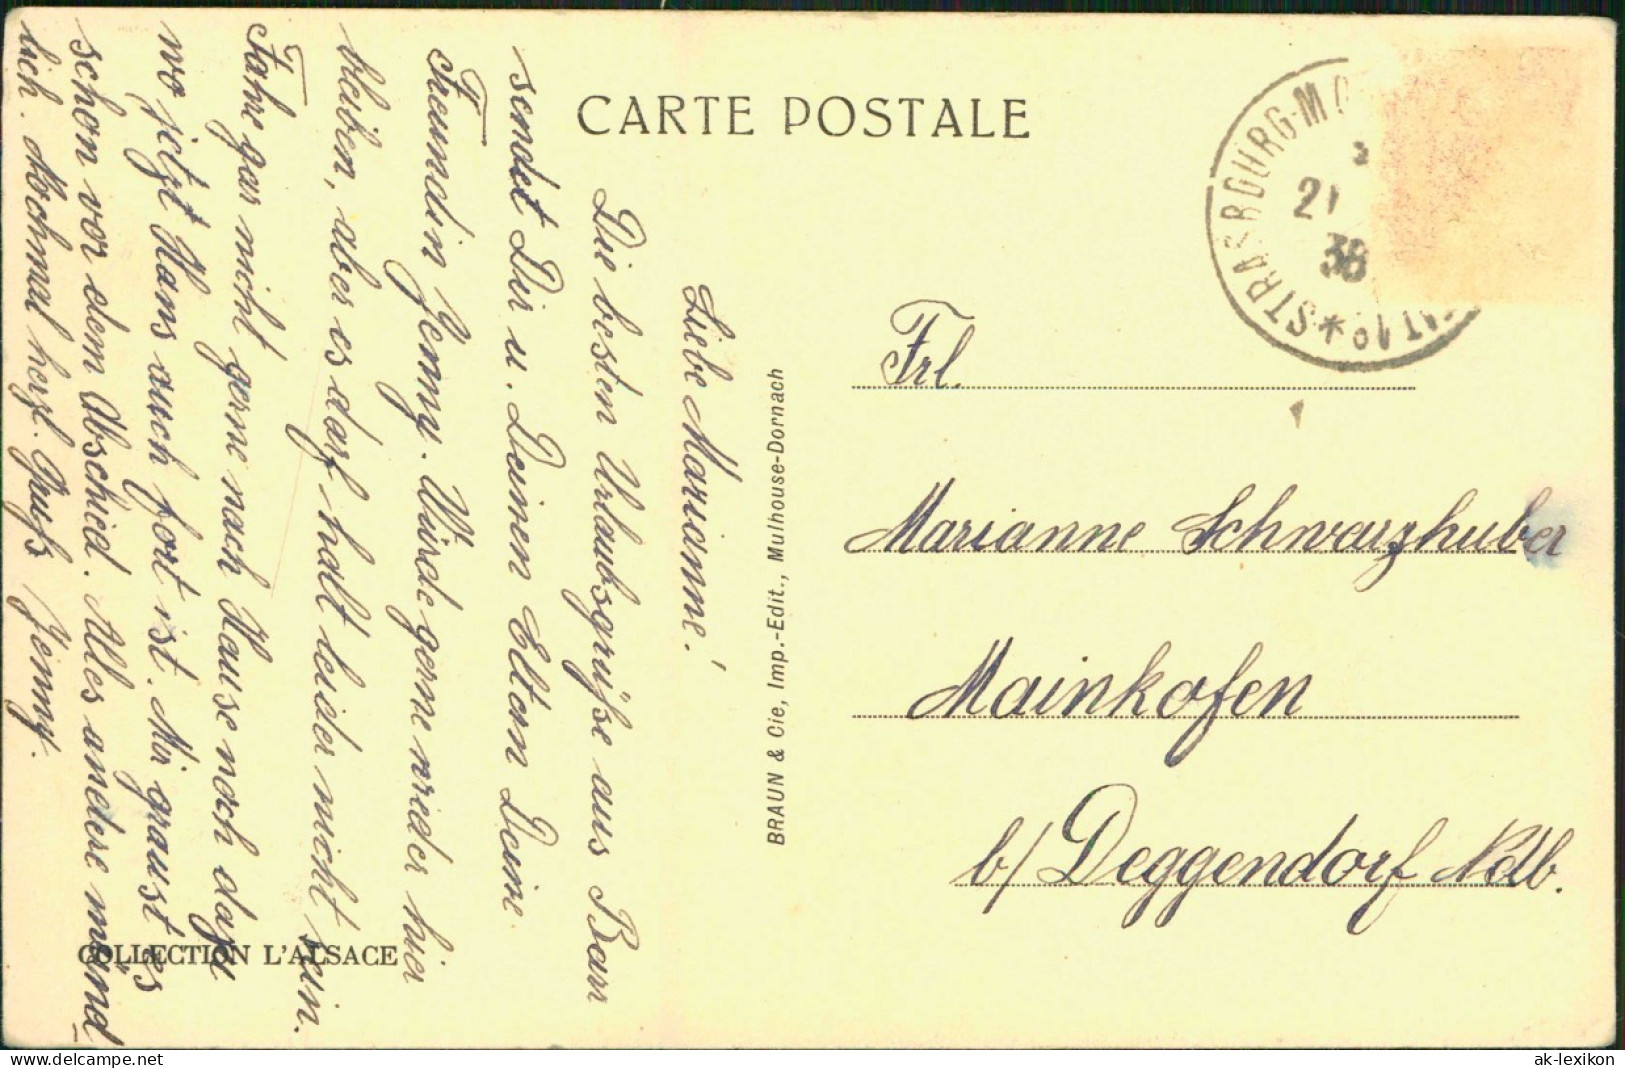 CARTE POSTALE
STRASBOURG-M
21
38
Liebe Marianne!
Die besten Urlaubsgrüße aus Barr
sendet Dir u. Deinen Eltern Deine
Freundin Jenny. Würde gerne wieder hier
bleiben, aber es darf halt leider nicht sein.
Fahre gar nicht gerne nach Hause noch dazu
wo jetzt Hans auch fort ist. Mir graust es
schon vor dem Abschied. Alles andere münd
lich. Nochmal herzl. Gruß Jenny.
BRAUN & Cie, Imp.-Edit., Mulhouse-Dornach
Frl.
Marianne Schwarzhuber
Mainkofen
b/ Deggendorf Ndb.
COLLECTION L'ALSACE
https://www.delcampe.net/sammlerecke
ak-lexikon